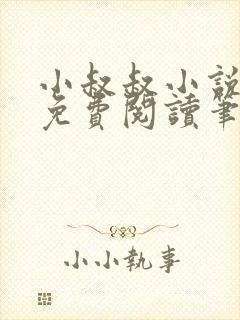 小叔叔小說
免費閱讀筆
小小執事